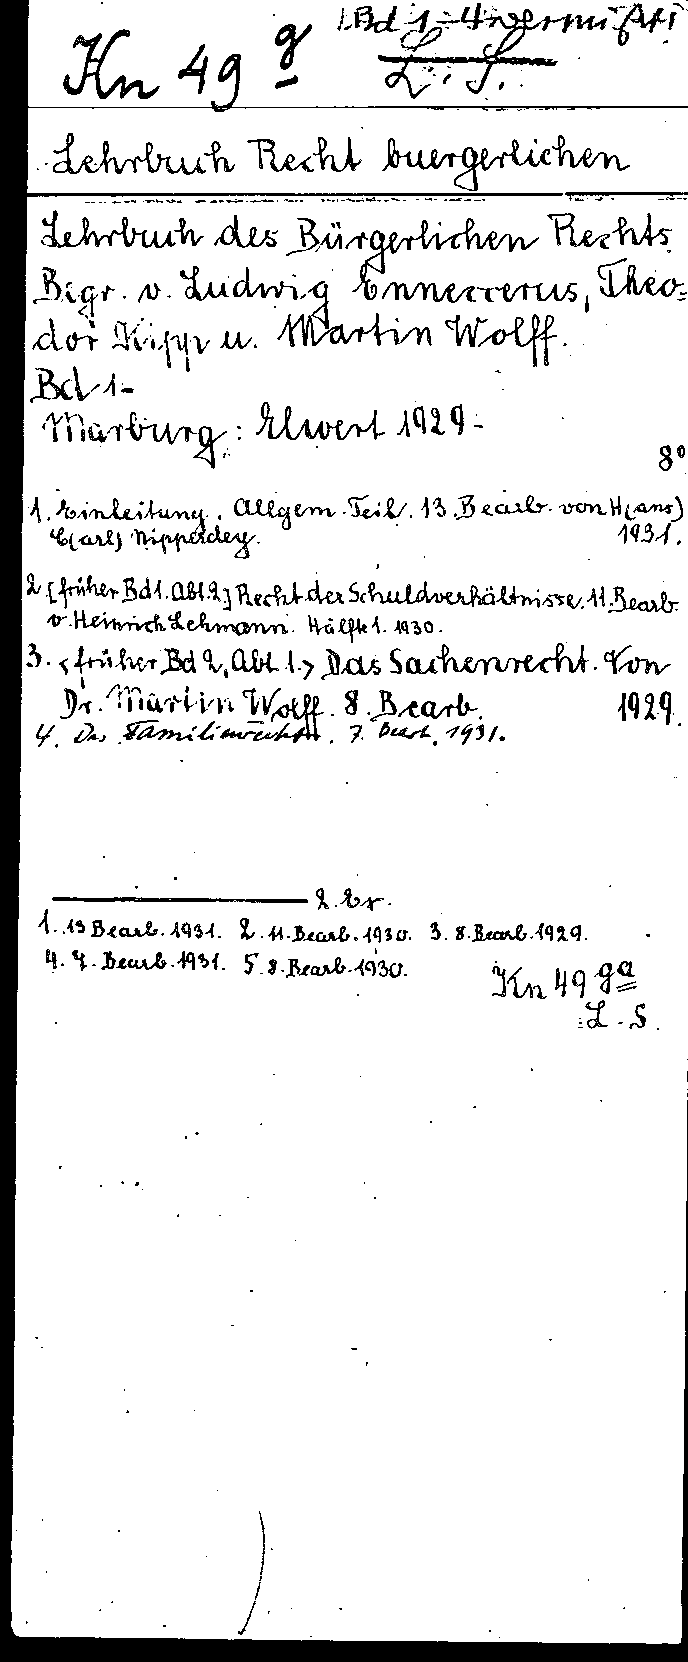 Bd 1-4 vermißt!
Kn 49 g L. S.
Lehrbuch Recht buergerlichen
Lehrbuch des Bürgerlichen Rechts
Begr. v. Ludwig Enneccerus, Theo-
dor Kipp u. Martin Wolff.
Bd 1-
Marburg: Elwert 1929-
8°
1. Einleitung. Allgem. Teil. 13. Bearb. von H(ans)
C(arl) Nipperdey. 1931.
2 [früher Bd 1. Abt. 2] Recht der Schuldverhältnisse. 11. Bearb.
v. Heinrich Lehmann. Hälfte 1. 1930.
3. <früher Bd 2, Abt 1.> Das Sachenrecht. Von
Dr. Martin Wolff. 8. Bearb. 1929.
4. Das Familienrecht. 7. Bearb. 1931.
2. Ex.
1. 13 Bearb. 1931. 2. 11. Bearb. 1930. 3. 8. Bearb. 1929.
4. 7. Bearb. 1931. 5. 8. Bearb. 1930.
Kn 49 ga
L. S.